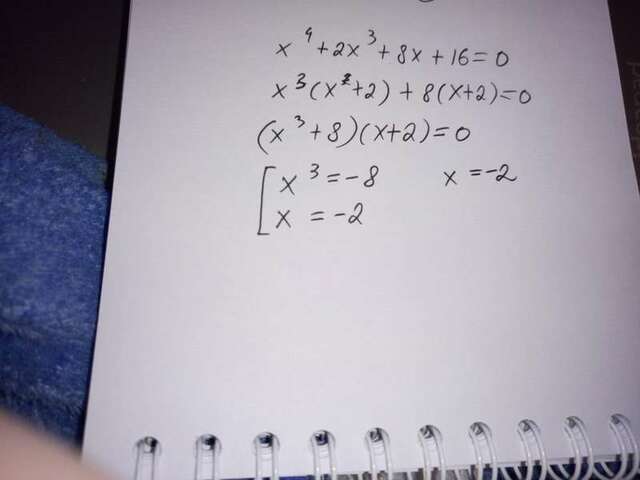 x⁴+2x³+8x+16=0
x³(x²+2)+8(x+2)=0
(x³+8)(x+2)=0
[x³=-8 x=-2
x=-2